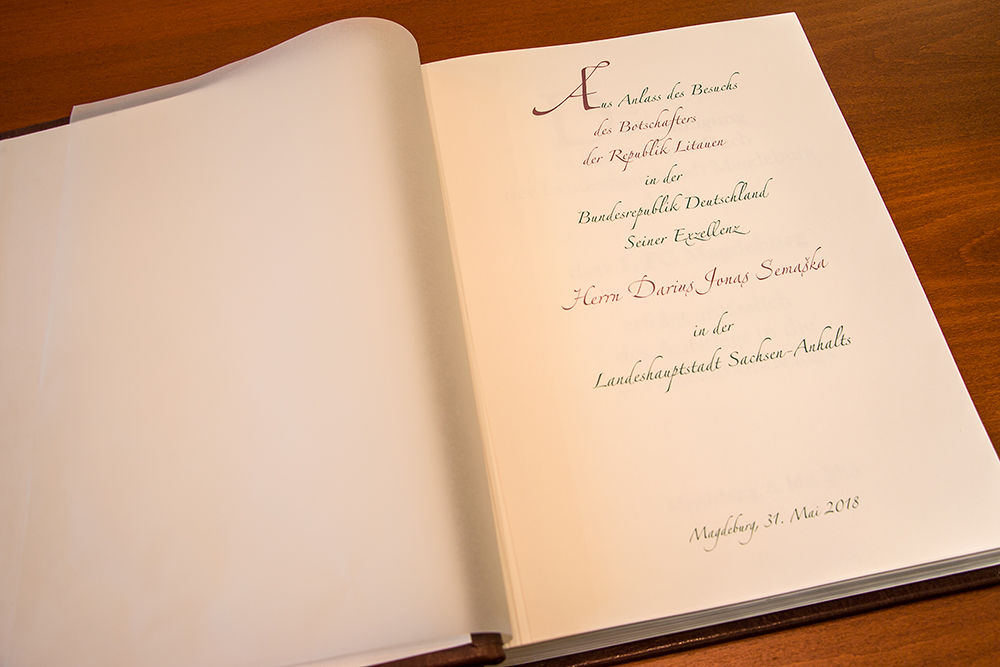 Aus Anlass des Besuchs
des Botschafters
der Republik Litauen
in der
Bundesrepublik Deutschland
Seiner Exzellenz
Herrn Darius Jonas Semaška
in der
Landeshauptstadt Sachsen-Anhalts
Magdeburg, 31. Mai 2018